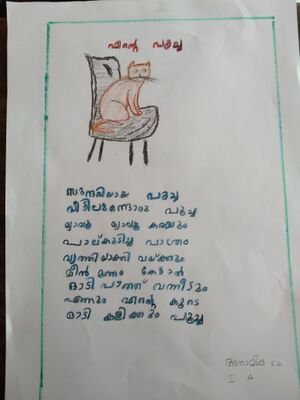 എന്റെ പൂച്ച
സുന്ദരിയായ പൂച്ച
വീട്ടിലുണ്ടൊരു പൂച്ച
മ്യാവൂ മ്യാവൂ കരയും
പാല്കുടിച്ച പാത്രം
വൃത്തിയാക്കി വയ്ക്കും
മീൻ മണം കേട്ടാൽ
ഓടി പാഞ്ഞ് വന്നീടും
എന്നും എന്റെ കൂടെ
ഓടി കളിക്കും പൂച്ച
അനാമിക S.G
I A